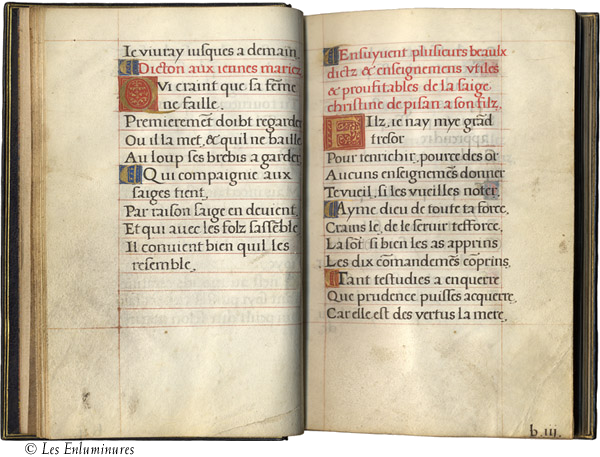 Ie viuray iusques a demain
Dicton aux ieunes mariez
Qvi craint que sa fēme
ne faille.
Premieremēt doibt regarder
Ou il la met, & quil ne baille
Au loup ses brebis a garder
Qui compaignie aux
saiges tient,
Par raison saige en deuient,
Et qui auec les folz sassēble
Il conuient bien quil les
resemble.
Ensuyuent plusieurs beaulx
dictz & enseignemens vtiles
& proufitables de la saige
christine de pisan a son filz.
Filz, ie nay mye grād
tresor
Pour tenrichir, pource des or
Aucuns enseignemēs donner
Te vueil, si les vueilles noter.
Ayme dieu de toute ta force,
Crains le, de le seruir tefforce,
La sōt si bien les as apprins
Les dix cōmandemēs cōprins
Tant testudies a enquerre
Que prudence puisses acquerre
Car elle est des vertus la mere,
b. iij.
© Les Enluminures